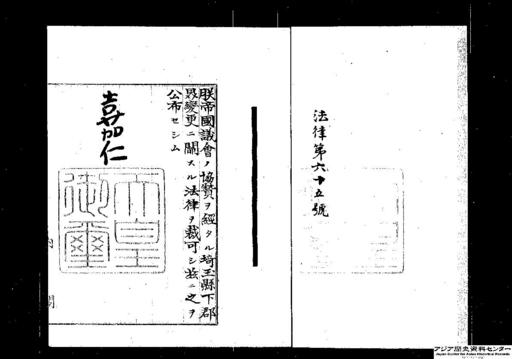 法律第六十五號
朕帝國議會ノ協贊ヲ經タル埼玉縣下郡
界變更ニ關スル法律ヲ裁可シ茲ニ之ヲ
公布セシム
嘉仁
天皇
御璽
内閣
アジア歴史資料センター
Japan Center for Asian Historical Records